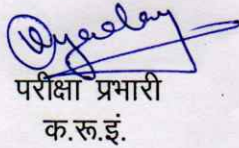 परीक्षा प्रभारी
क.रू.इं.